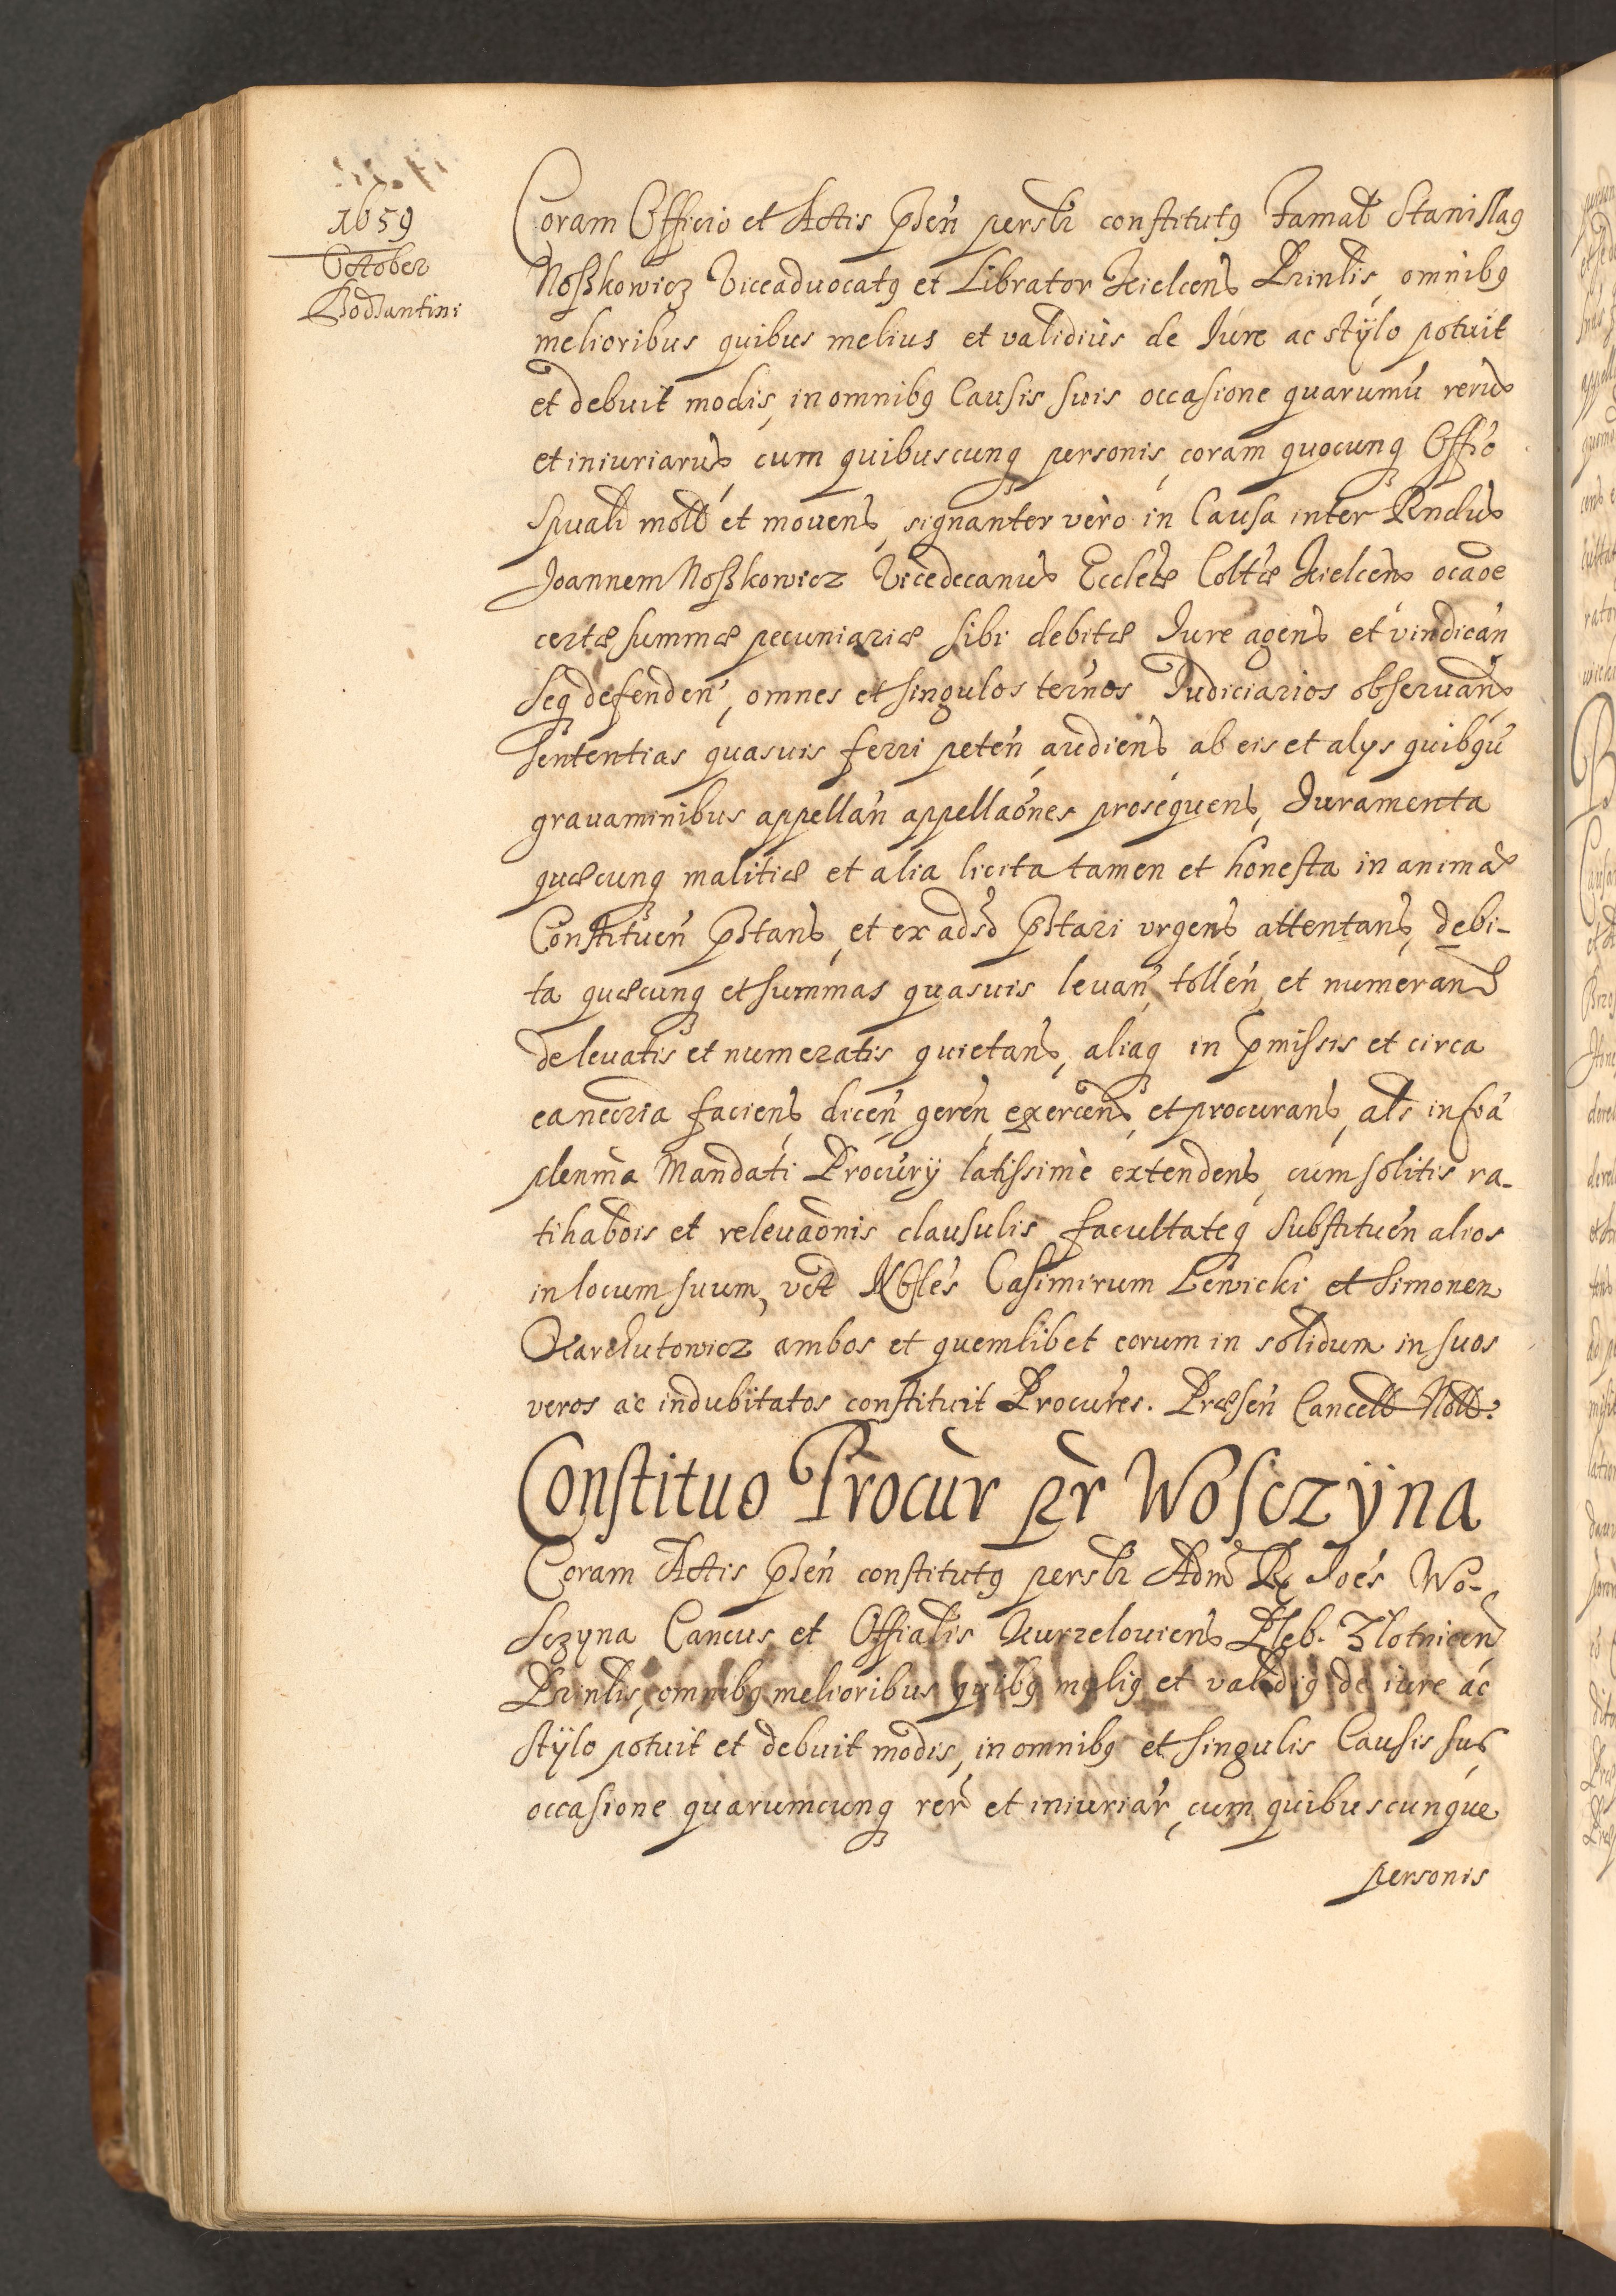 1659
October
Bodzantini
Coram Officio et Actis pñsen̄ personlr constitutq Famat Stanislaq
Noßkowicz Viceaduocatq et Librator Kielcens Prinlis, omnibq
melioribus quibus melius et validiùs de Iure ac stÿlo potuit
et debuit modis, in omnibq Causis suis occasione quarumū rerum
et iniuriarum, cum quibuscunq personis, coram quocunq Offio
Spuali mott et mouens, signanter verò in Causa inter Rndum
Joannem Noßkowicz Vicedecanum Ecclesæ Coltæ Kielcens ocaõe
certæ summæ pecuniariæ sibi debitæ Iure agens et vindicań
seq defendeń, omnes et singulos terḿnos Iudiciarios obseruans
sententias quasuis ferri peteń audiens ab eis et alys quibqú
grauaminibus appellań appellaõnes prosequens, Iuramenta
quæcunq malitiæ et alia licita tamen et honesta in animam
Constitueń pstans, et ex adso pstari vrgens attentans, debi-
ta quæcunq et summas quasuis leuań, tolleń, et numerans
de leuatis et numeratis quietans, aliaq in pmissis et circa
ea necria faciens diceń, gereń, exercens, et procurans, als in forá
plenma Mandati Procurÿ latissimè extendens, cum solitis ra-
tihabõis et releuaõnis clausulis, facultateq substitueń alios
in locum suum, vdt Nbiles Casimirum Lewicki, et Simonem
Karchutowicz ambos et quemlibet eorum in solidum in suos
veros ac indubitatos constituit Procures. Præseń Cancell Nott.
Constituo Procur pr Wosczÿna
Coram Actis pñseń constitutq personlr Adm R Joes Wo-
sczyna Cancus et Offialis Kurzelouiens Pleb. Zlotnicens
Prinlis, omnibq melioribus quibq meliq et validiq de iure ac
stÿlo potuit et debuit modis, in omnibq et singulis Causis suis
occasione quarumcunq rer et iniuriar, cum quibuscunque
personis